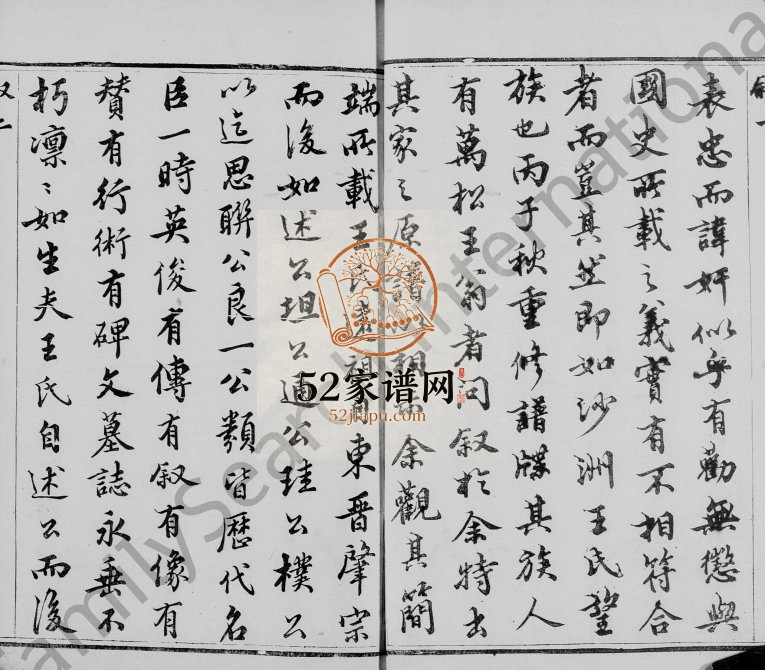 敘一
表忠而諱奸似乎有勸無懲與
國史所載之義實有不相符合
者而豈其然即如沙洲王氏望
族也丙子秋重修譜牒其族人
有萬松王翁者問叙於余特出
其家之原譜 相 余觀其簡
端所載王氏遠祖自東晉肇宗
而後如述公坦公通公珪公樸公
以迄思聯公良一公類皆歷代名
臣一時英俊有傳有叙有像有
贊有行術有碑文墓誌永垂不
朽凛〻如生夫王氏自述公而後
叙二
52家谱网
52jiapu.com
FamilySearch International